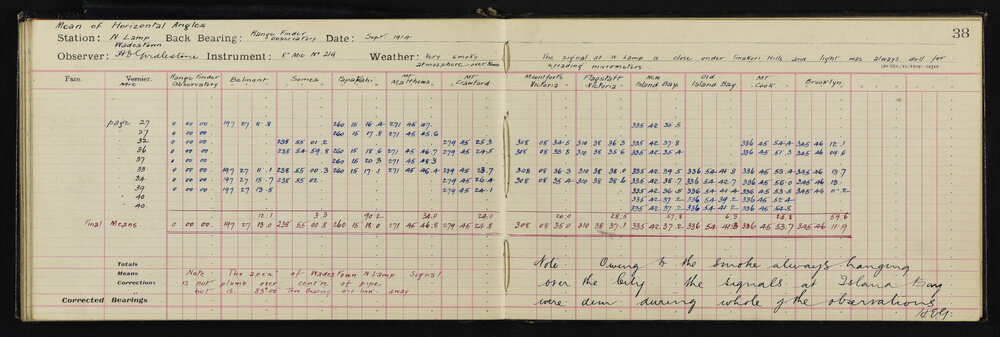 Mean of Horizontal Angles
Station: N Lamp Wadestown Back Bearing: Range Finder Observatory Date: Sept 1914
38
Observer: H E Girdlestone Instrument: 5" Mic No 214 Weather: Very smoky atmosphere over town
The signal at N Lamp is close under Tinakori Hills and light was always dull for reading micrometers
Face. Vernier. Mic. Range Finder Observatory Belmont Somes Papakohi Mt Matthews Mt Crawford Mountfort's Victoria Flagstaff Victoria New Island Bay Old Island Bay Mt Cook Brooklyn
page 27 0 00 00 197 27 11.8 260 15 16.4 271 45 47. 335 42 35.5
" 27 0 00 00 260 15 17.8 271 45 45.6
32 0 00 00 238 55 01.2 279 45 25.3 308 08 34.5 310 38 36.3 335 42 37.8 336 45 54.4 345 46 12.1
36 0 00 00 238 54 59.8 260 15 18.6 271 45 46.7 279 45 24.5 308 08 33.8 310 38 35.6 335 42 35.4 336 45 51.3 345 46 09.6
37 0 00 00 260 15 20.3 271 45 48.3
33 0 00 00 197 27 11.1 238 55 00.3 260 15 17.1 271 45 46.4 279 45 23.7 308 08 36.3 310 38 38.0 335 42 39.5 336 54 41.8 336 45 53.4 345 46 13.7
34 0 00 00 197 27 15.7 238 55 02. 279 45 26.4 308 08 35.4 310 38 38.6 335 42 38.7 336 54 42.7 336 45 56.0 345 46 13.
39 0 00 00 197 27 13.5 279 45 24.1 335 42 36.5 336 54 41.4 336 45 53.5 345 46 11.2
" 40 335 42 37.2 336 54 39.2 336 45 52.4
" 40 335 42 37.2 336 54 41.2 336 45 54.8
12.1 3.3 90.2 34.0 24.0 20.0 28.5 57.8 6.3 25.8 59.6
Final Means 0 00 00 197 27 13.0 238 55 00.8 260 15 18.0 271 45 46.8 279 45 24.8 308 08 35.0 310 38 37.1 335 42 37.2 336 54 41.3 336 45 53.7 345 46 11.9
Totals
Means
Corrections
Corrected Bearings
Note The apex of Wadestown N Lamp Signal
is not plumb over centre of pipe
but is 83°00' True Bearing away
Note Owing to the smoke always hanging
over the City the signals at Island Bay
were dim during whole of the observations
H.E.G.